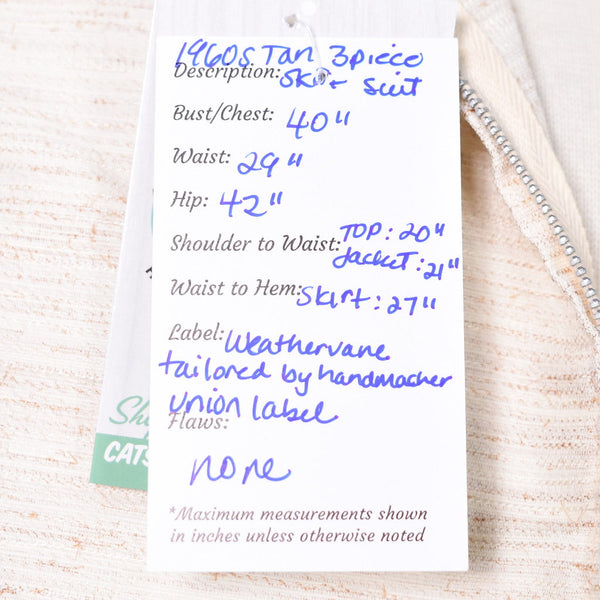 1960s Tan 3piece
Description: Skirt Suit
Bust/Chest: 40"
Waist: 29"
Hip: 42"
Shoulder to Waist: TOP: 20"
Jacket: 21"
Waist to Hem: Skirt: 27"
Label: Weathervane
tailored by handmacher
union label
Flaws:
none
*Maximum measurements shown
in inches unless otherwise noted
Sh
CATS